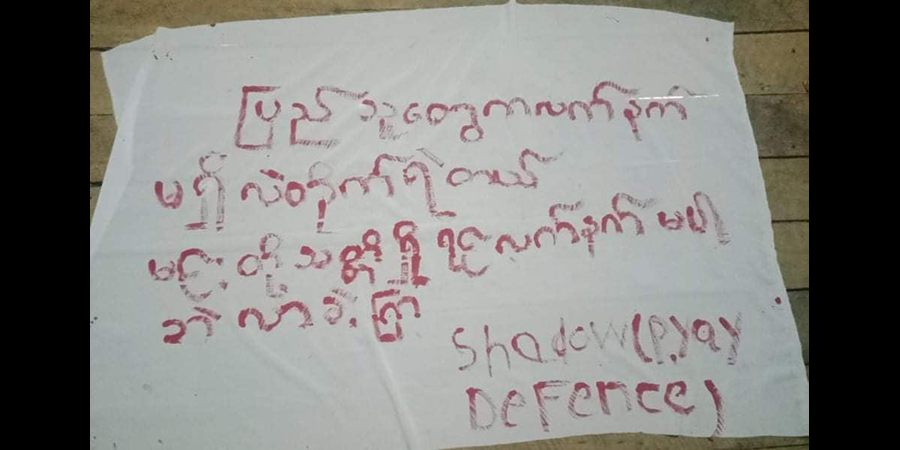 ပြည်သူတွေကလက်နက်
မရှိလဲစခိုက်ရဲတယ်
မင်းတို့သတ္တိရှိရင်လက်နက်မပါ
ဘဲလာခဲ့ကြ
Shadow(pyay
Defence)